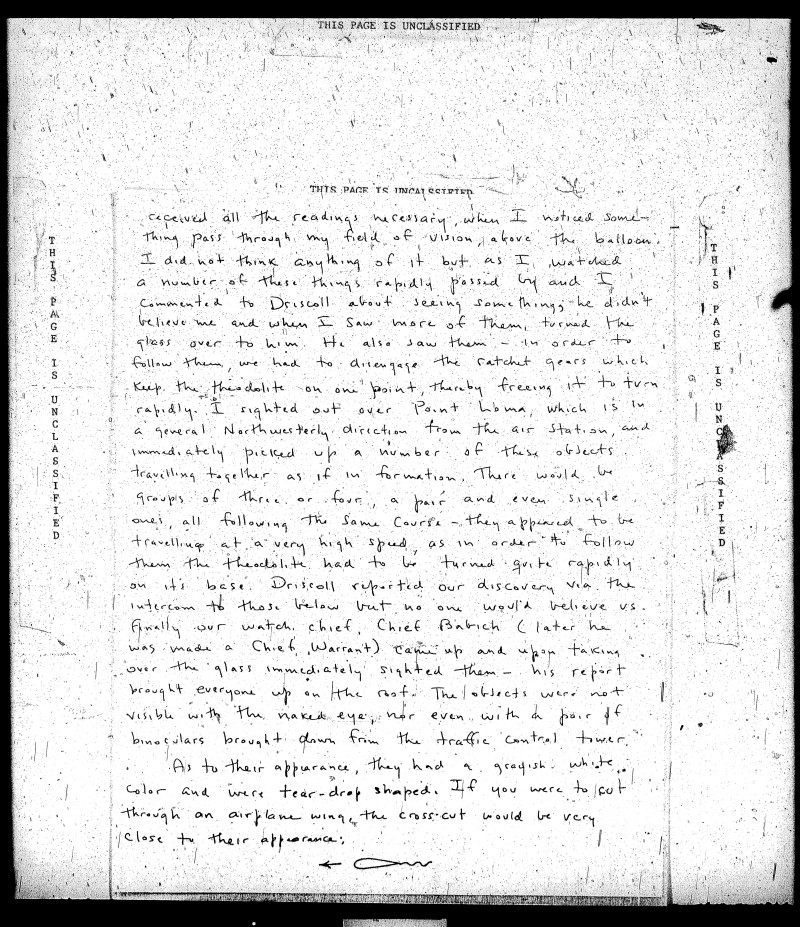 THIS PAGE IS UNCLASSIFIED
THIS PAGE IS UNCALSSIFIED
received all the readings necessary, when I noticed some-
thing pass through my field of vision, above the balloon.
I did not think anything of it but as I watched
a number of these things rapidly passed by and I
commented to Driscoll about seeing something, he didn't
believe me and when I saw more of them, turned the
glass over to him. He also saw them - in order to
follow them, we had to disengage the ratchet gears which
keep the theodolite on one point, thereby freeing it to turn
rapidly. I sighted out over Point Loma, which is in
a general Northwesterly direction from the air station, and
immediately picked up a number of these objects
travelling together as if in formation. There would be
groups of three or four, a pair and even single
ones, all following the same course - they appeared to be
travelling at a very high speed, as in order to follow
them the theodolite had to be turned quite rapidly
on it's base. Driscoll reported our discovery via the
intercom to those below but no one would believe us.
Finally our watch chief, Chief Babich (later he
was made a Chief Warrant) came up and upon taking
over the glass immediately sighted them - his report
brought everyone up on the roof. The objects were not
visible with the naked eye, nor even with a pair of
binoculars brought down from the traffic control tower.
As to their appearance, they had a grayish white
color and were tear-drop shaped. If you were to cut
through an airplane wing, the cross-cut would be very
close to their appearance:
THIS PAGE IS UNCLASSIFIED
THIS PAGE IS UNCLASSIFIED